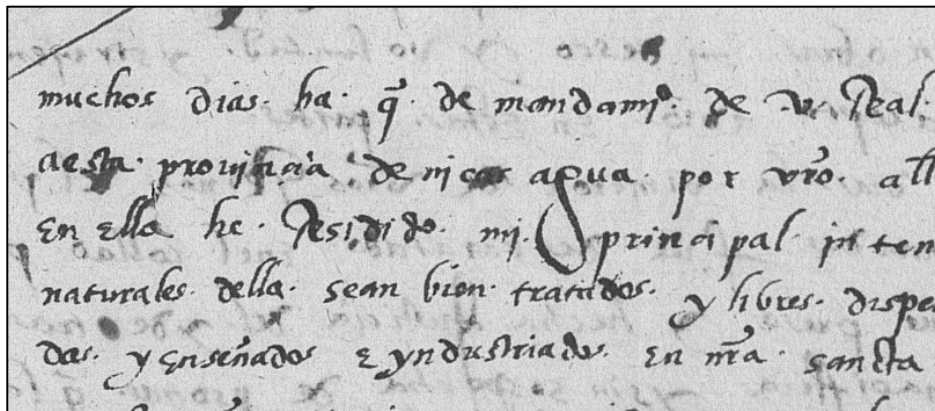 muchos dias. ha. q̃. de mandamiº. de v. Real.
aesta. provinçia de nicaragua. por vrō. all
en ella he. Residido. mi. principal. inten
naturales. della. sean bien. tratados. y libres. dispe
das. y enseñados e yndustriados. en nr̃a. sancta